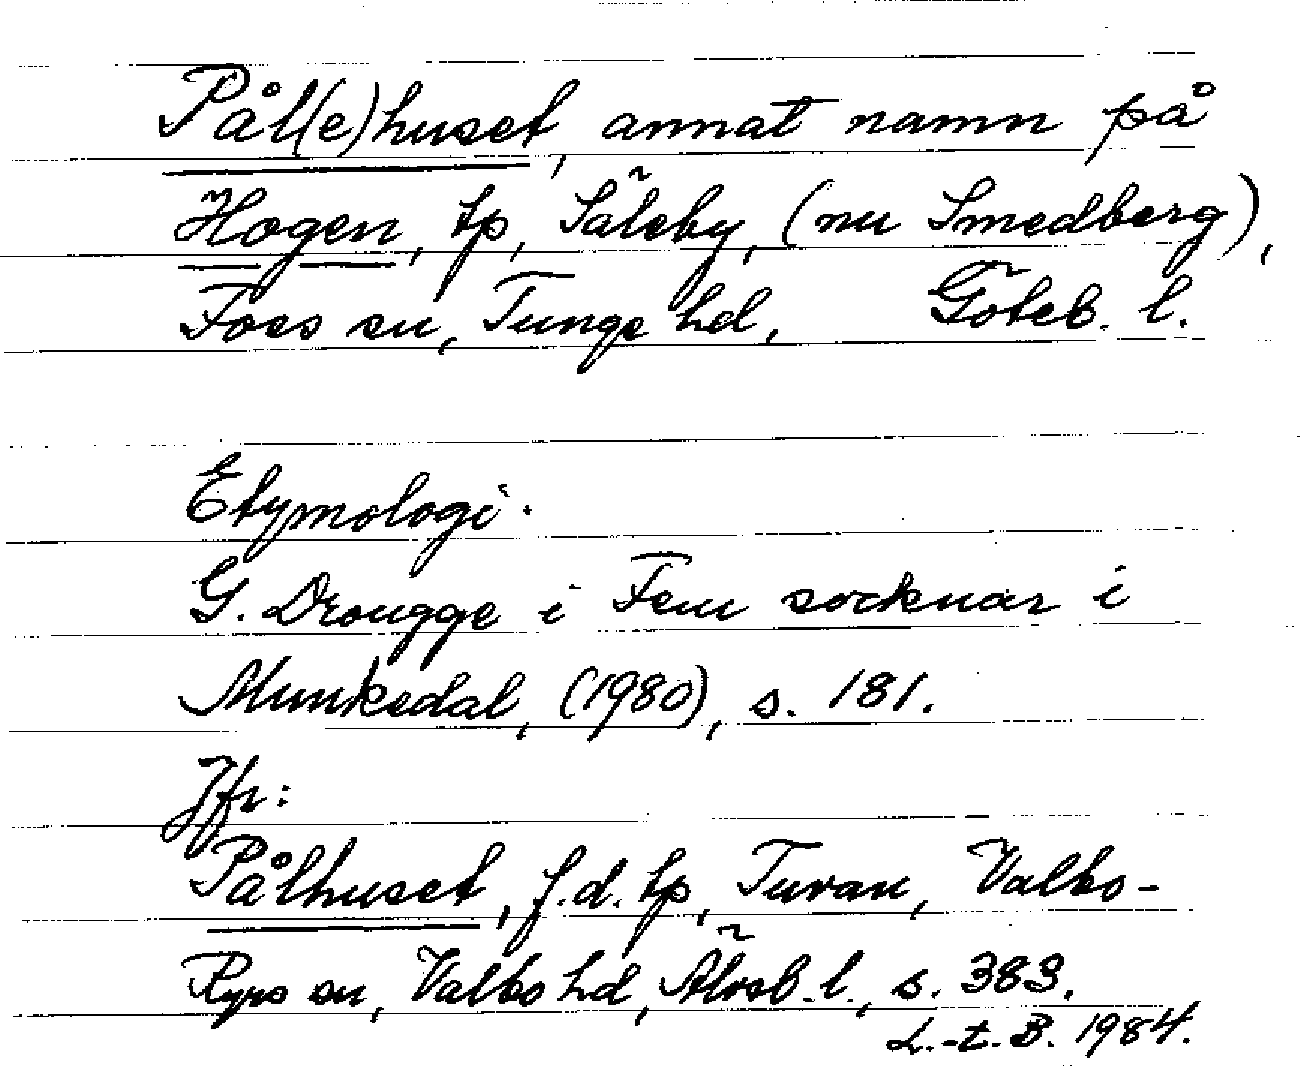 Pål(e)huset, annat namn på
Hogen, tp, Säleby, (nu Smedberg),
Foss sn, Tunge hd, Göteb. l.
Etymologi.
G. Drougge i Fem socknar i
Munkedal, (1980), s. 181.
Jfr:
Pålhuset, f.d. tp, Turan, Valbo-
Ryrs sn, Valbo hd, Älvsb. l., s. 383.
L.-t. B. 1984.